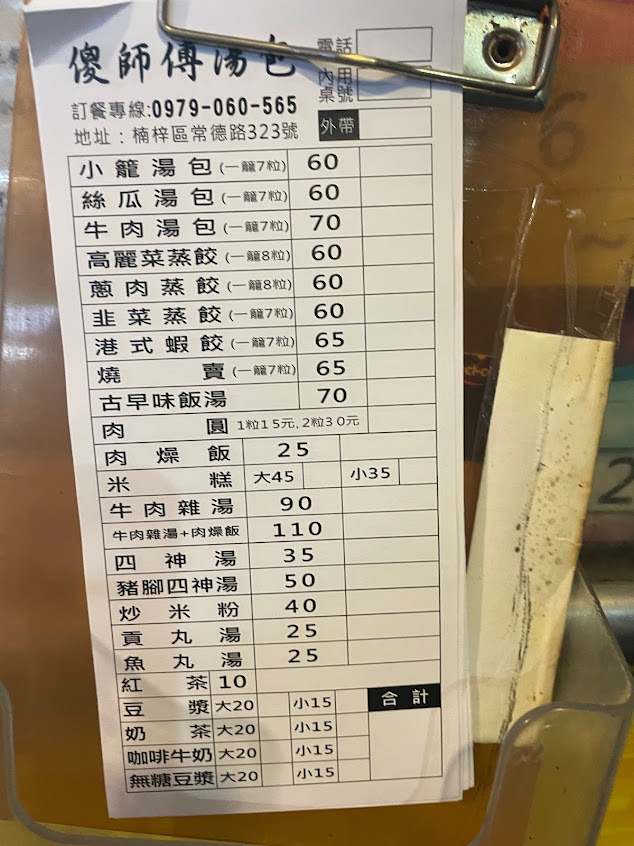 傻師傅湯包
電話
內用
桌號
訂餐專線:0979-060-565
地址：楠梓區常德路323號
外帶
小籠湯包(一籠7粒) 60
絲瓜湯包(一籠7粒) 60
牛肉湯包(一籠7粒) 70
高麗菜蒸餃(一籠8粒) 60
蔥肉蒸餃(一籠8粒) 60
韭菜蒸餃(一籠7粒) 60
港式蝦餃(一籠7粒) 65
燒賣(一籠7粒) 65
古早味飯湯 70
肉圓 1粒15元,2粒30元
肉燥飯 25
米糕 大45 小35
牛肉雜湯 90
牛肉雜湯+肉燥飯 110
四神湯 35
豬腳四神湯 50
炒米粉 40
貢丸湯 25
魚丸湯 25
紅茶 10
豆漿 大20 小15
合計
奶茶 大20 小15
咖啡牛奶 大20 小15
無糖豆漿 大20 小15